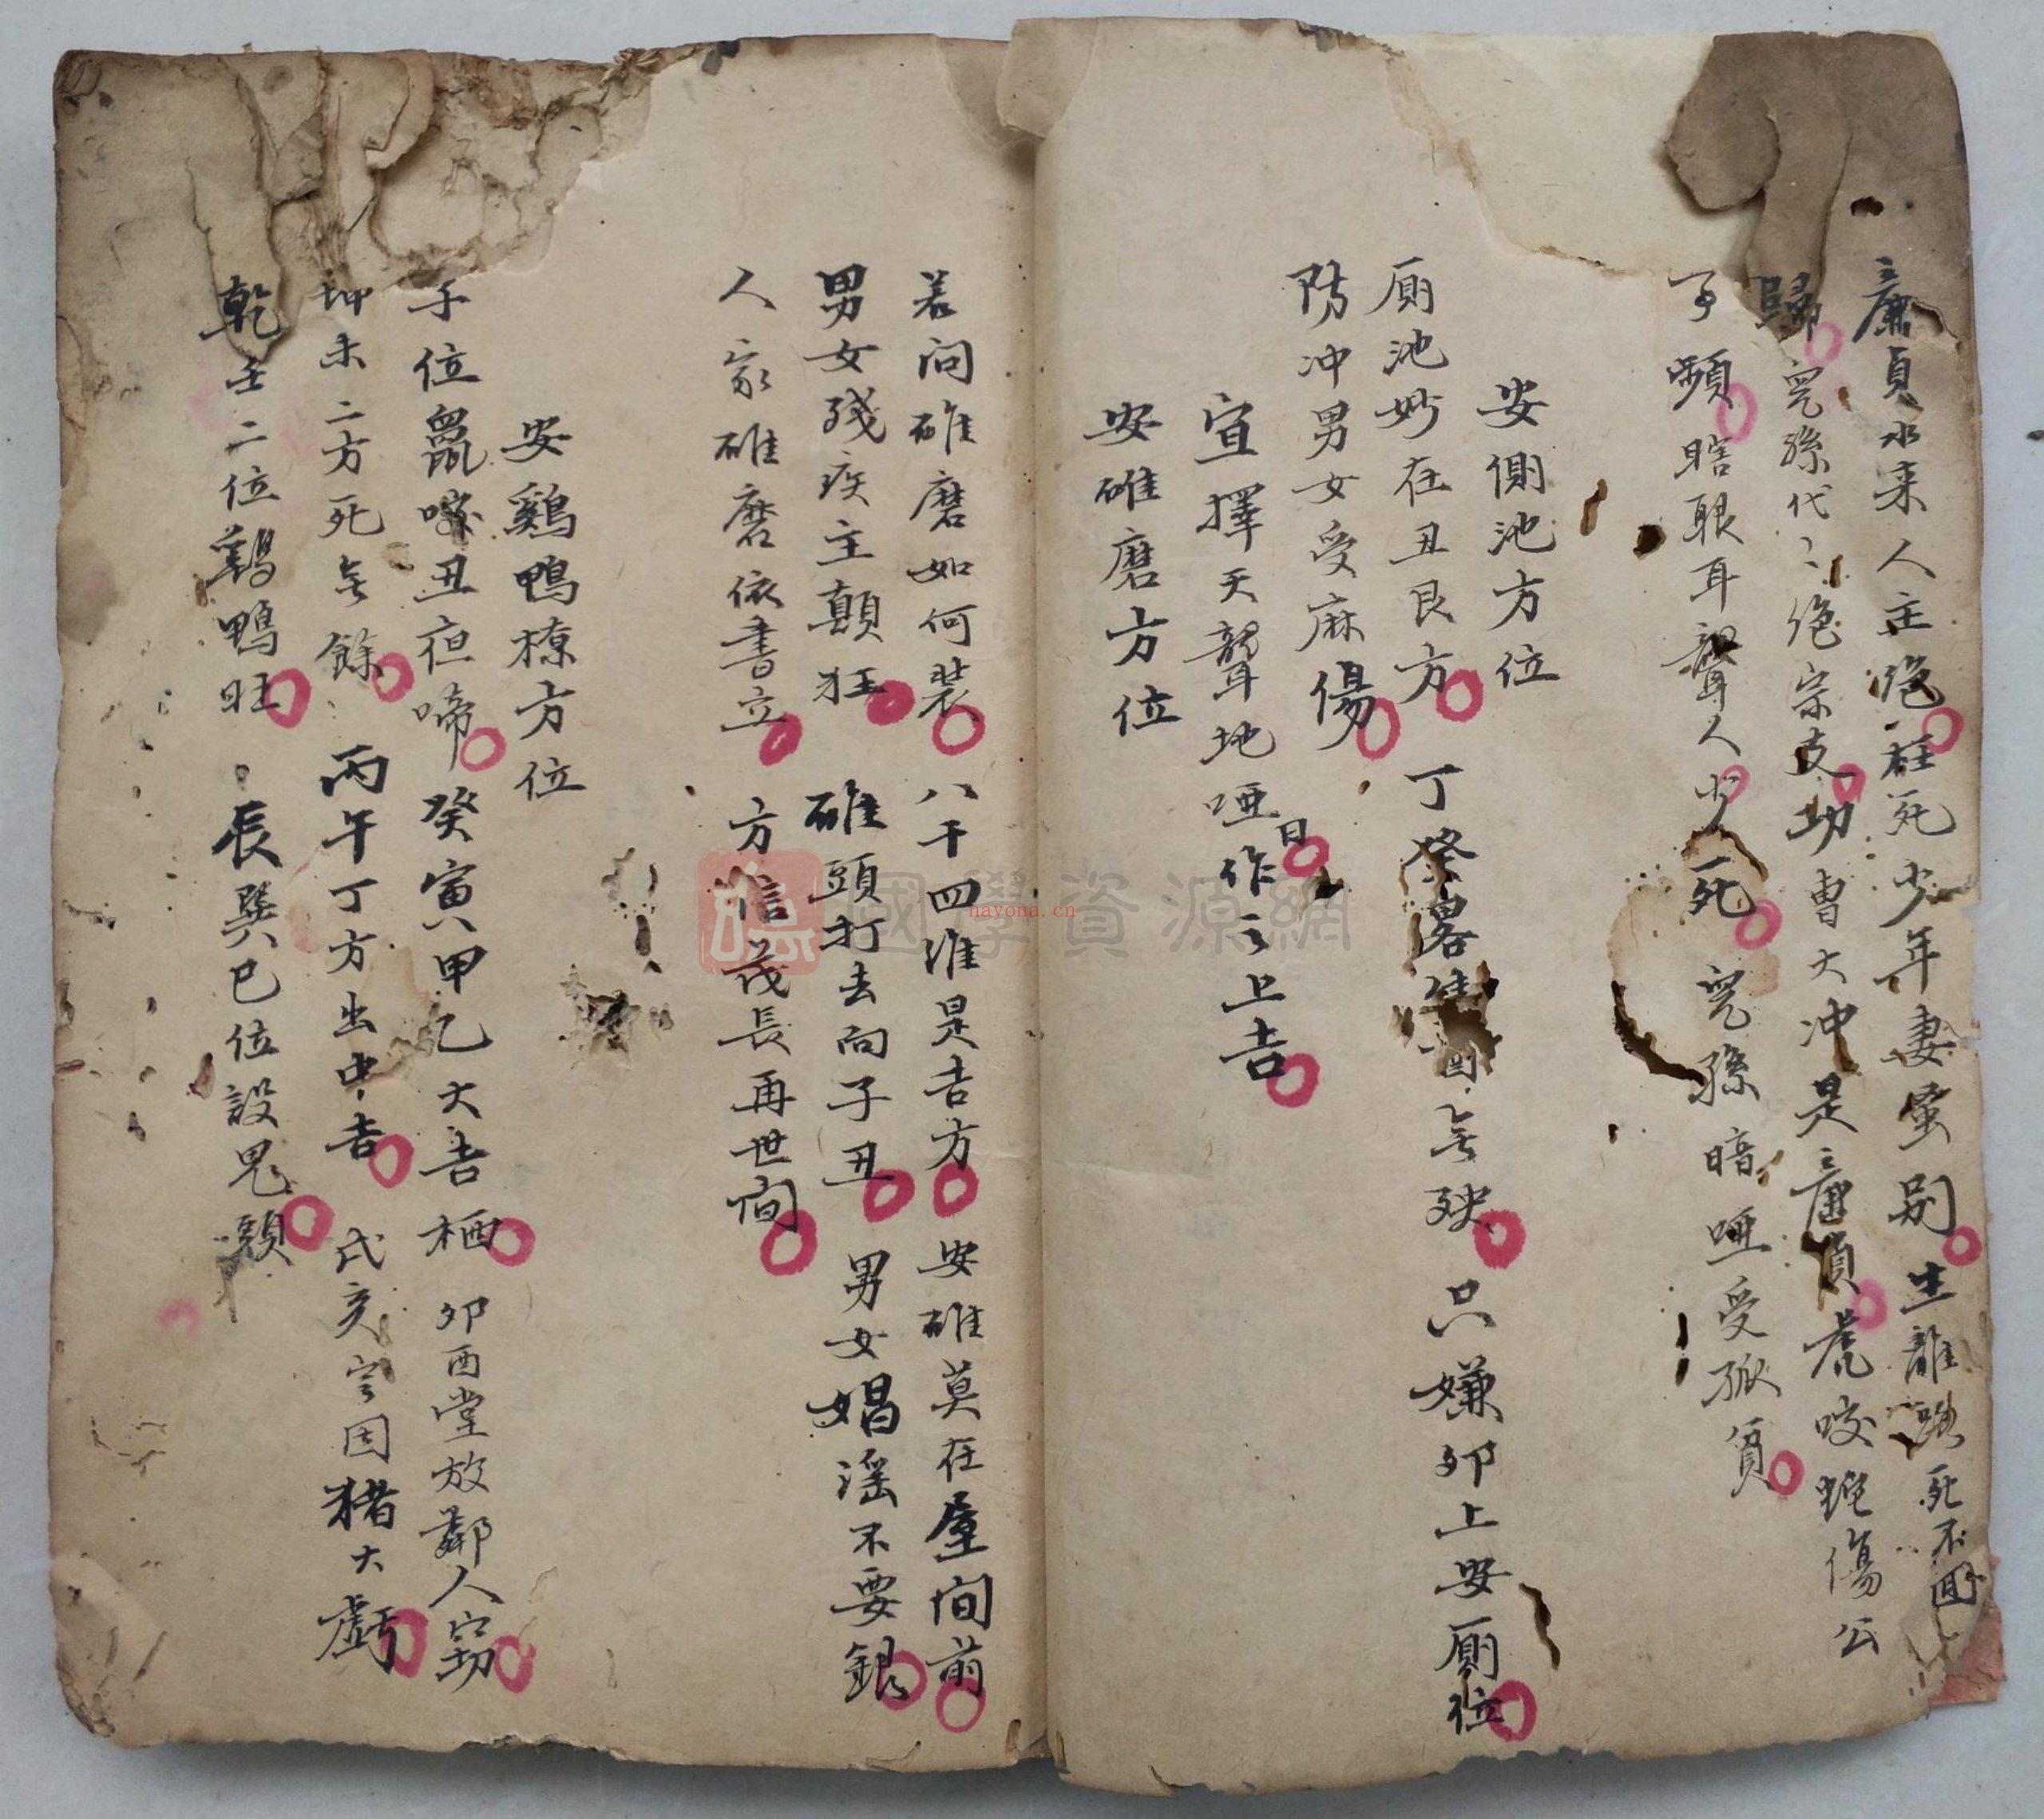 廉貞水來人主絕枉死少年妻蚤别生離路死不回
歸児孫代〻絶宗支功曹大冲是廉貞虎咬蛇傷公
子頻瞎眼耳聾人少死児孫暗啞受孤貧
安側池方位
厠池妙在丑艮方丁癸畧無殃只嫌卯上安厠位
防冲男女受麻傷
宜擇天聾地啞日作之上吉
安碓磨方位
若问碓磨如何装八干四准是吉方安碓莫在屋间前
男女殘疾主顛狂碓頭打去向子丑男女娼滛不要銀
人家碓磨依書立方信茂長再世间
安鷄鴨橑方位
子位鼠咬丑夜啼癸寅甲乙大吉栖卯酉堂放鄰人窃
坤未二方死無餘丙午丁方出中吉戌亥之因猪大虧
乾壬二位鷄鴨旺辰巽巳位設鬼頭
國學資源網
nayona.cn